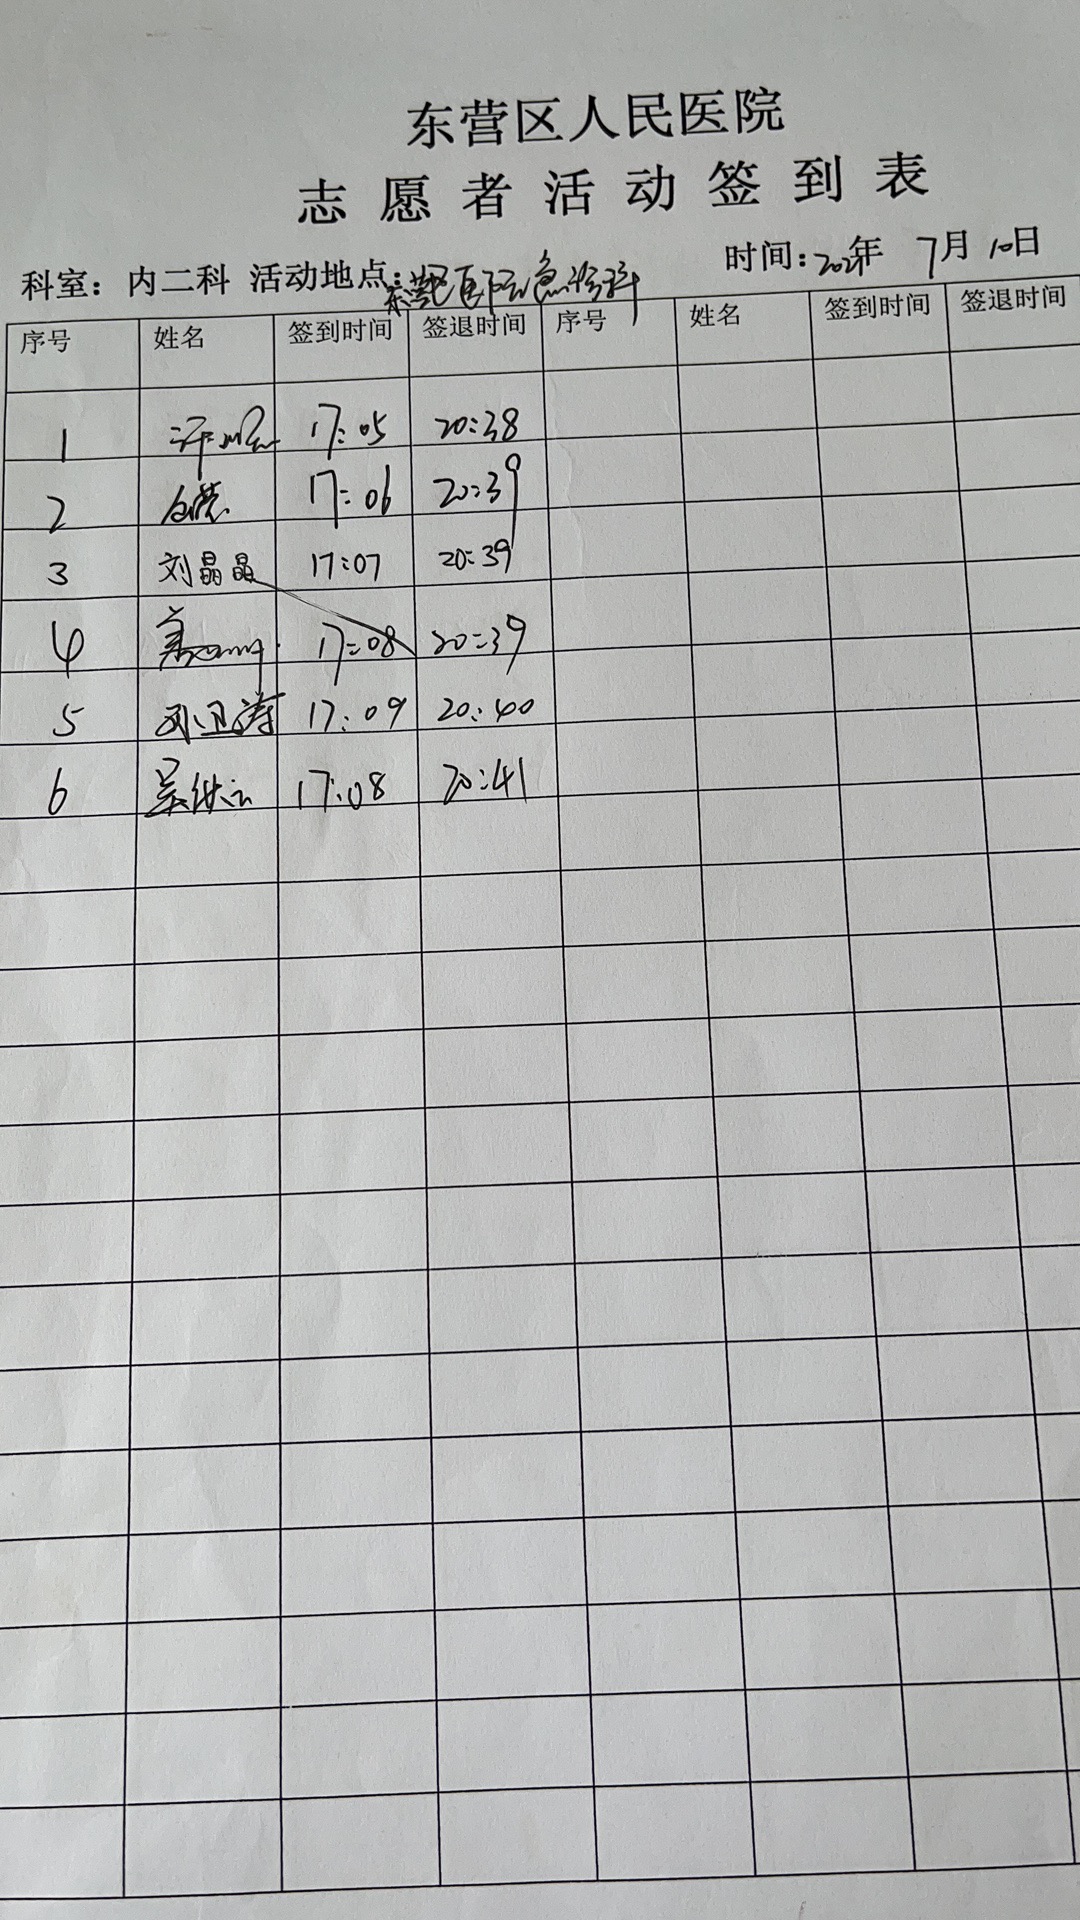 东营区人民医院
志愿者活动签到表
科室：内二科 活动地点：东营区人民医院急诊科 时间：年 7月10日
序号 姓名 签到时间 签退时间 序号 姓名 签到时间 签退时间
1 17:05 20:38
2 17:06 20:39
3 刘晶晶 17:07 20:39
4 17:08 20:39
5 17:09 20:40
6 17:08 20:41